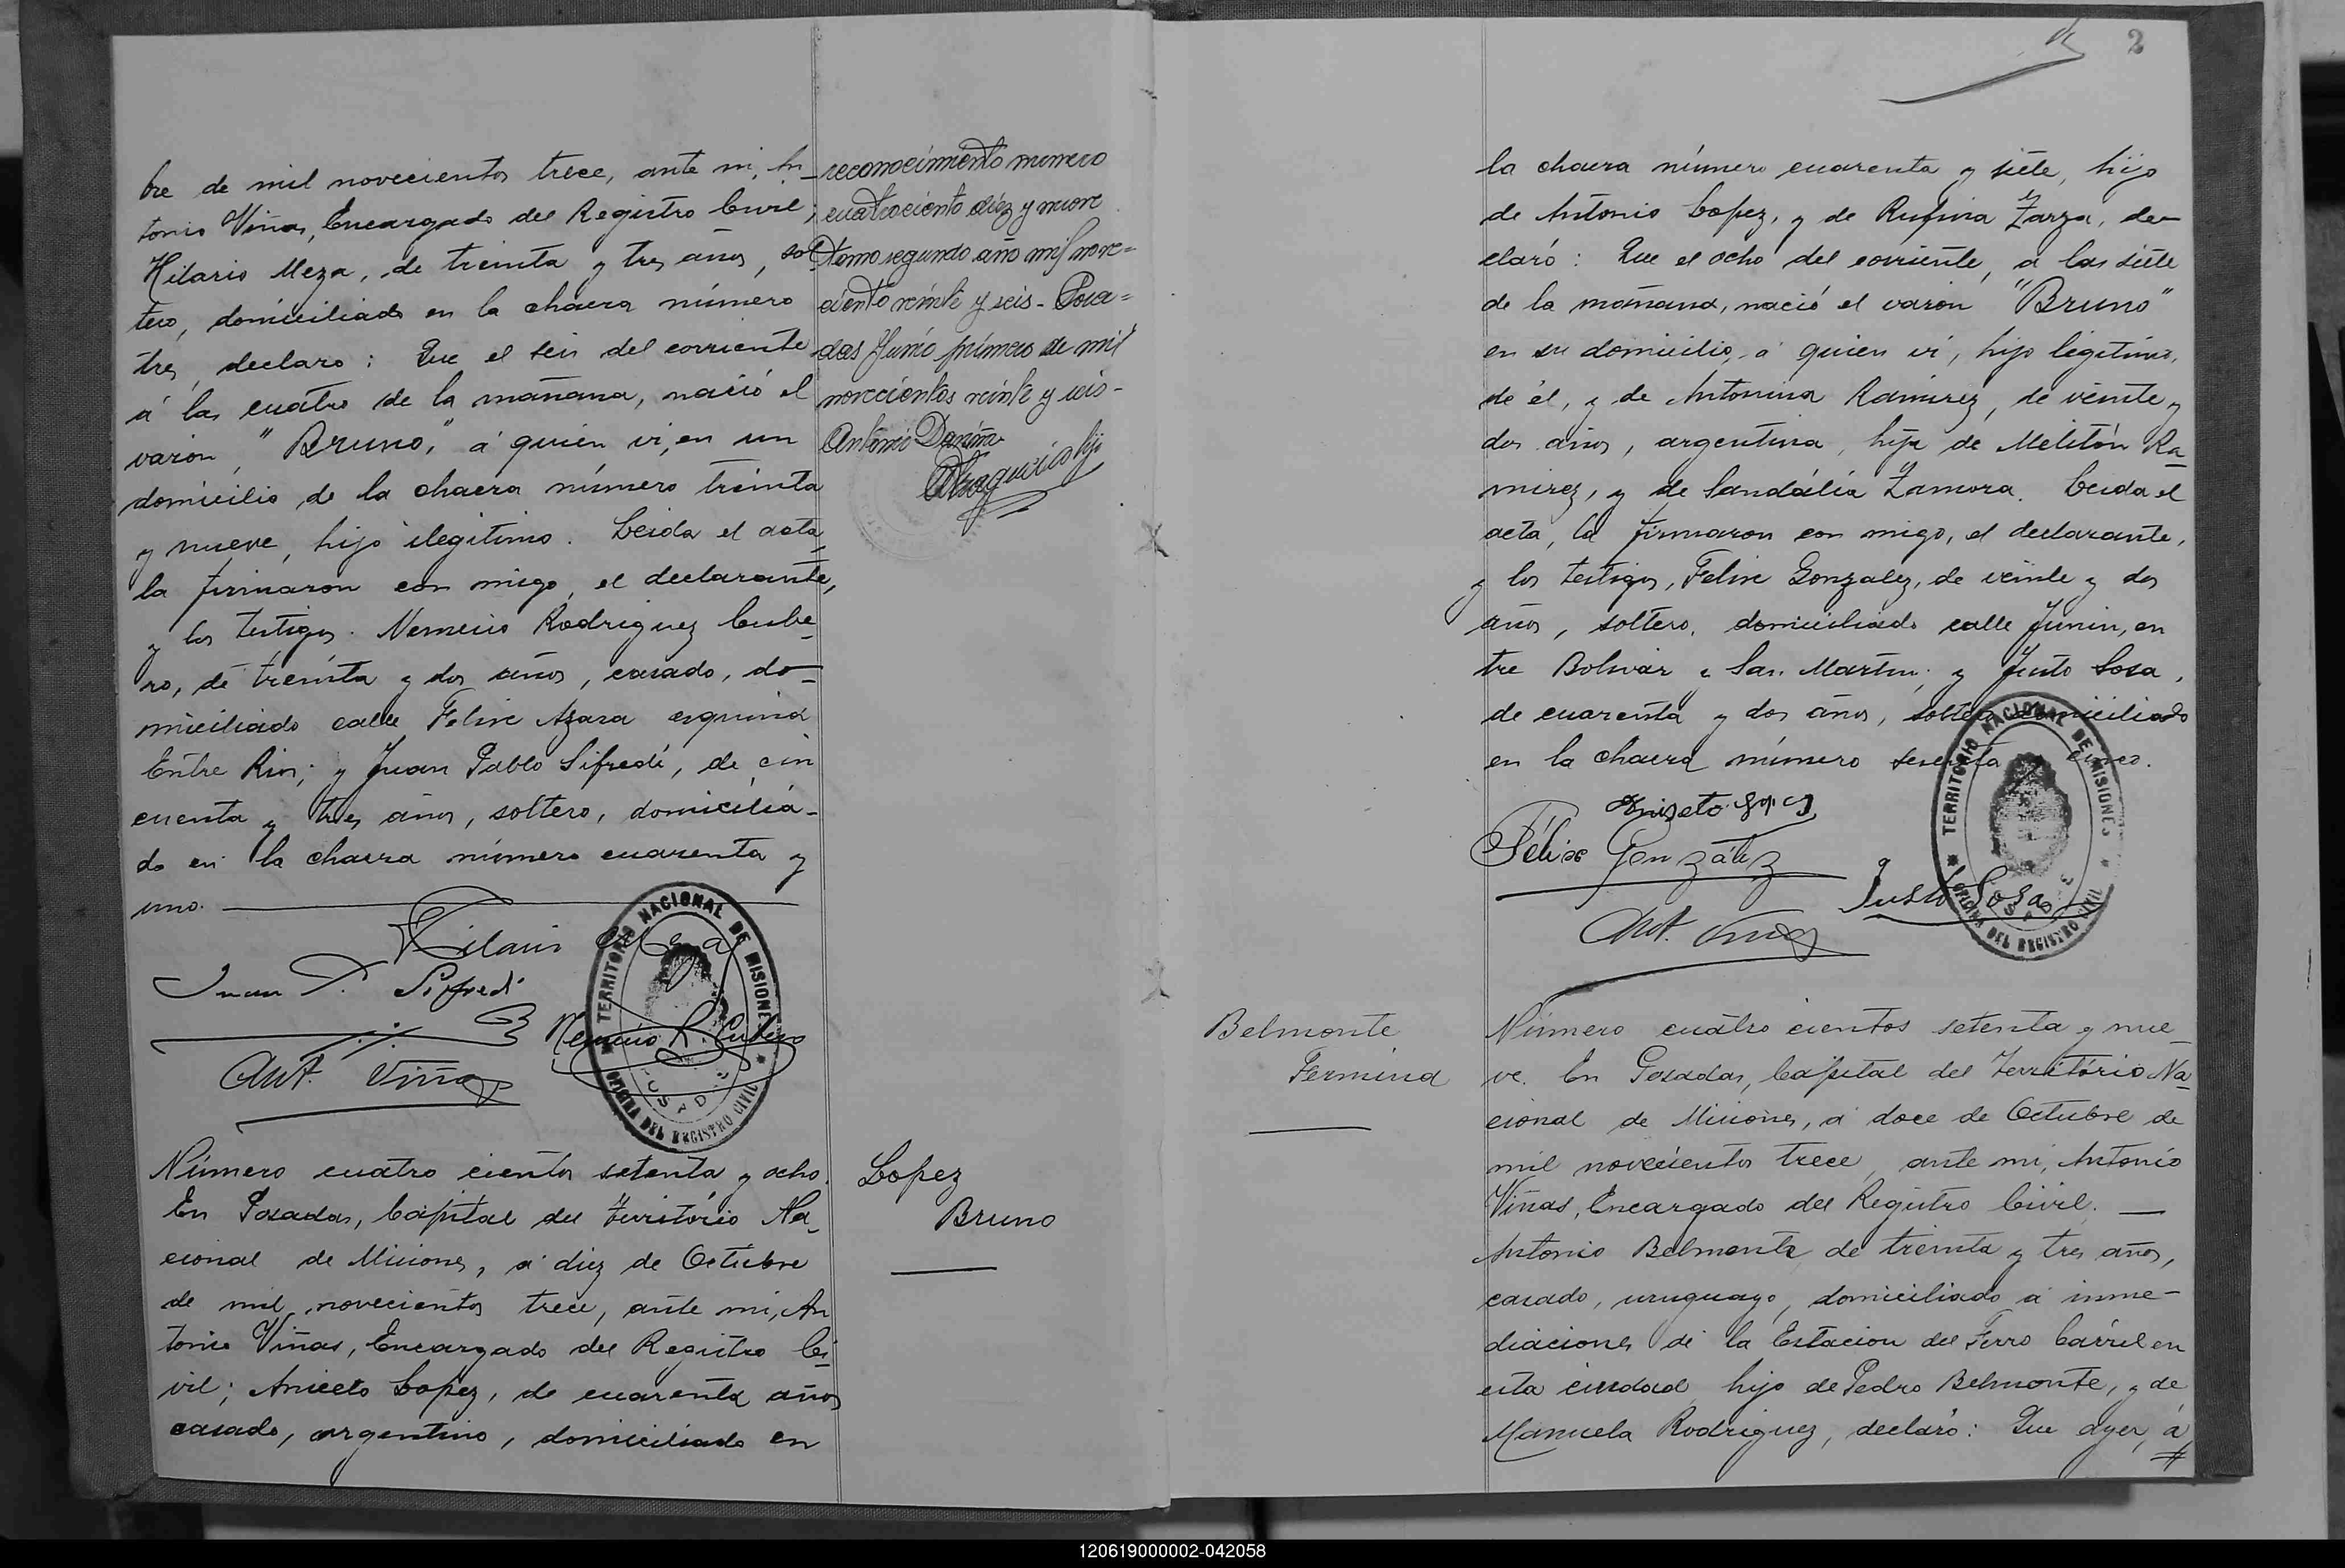 bre de mil novecientos trece, ante mi, An
tonio Viñas, Encargado del Registro Civil;
Hilario Meza, de treinta y tres años, sol
tero, domiciliado en la chacra número
tres, declaro: Que el seis del corriente
á las cuatro de la mañana, nació el
varon, "Bruno," á quien vi, en un
domicilio de la chacra número treinta
y nueve, hijo ilegítimo. Leida el acta,
la firmaron con migo, el declarante,
y los testigos. Nemecio Rodriguez Cube
ro, de treinta y dos años, casado, do-
miciliado calle Felix Azara esquina
Entre Rios; y Juan Pablo Sifredi, de cin
cuenta y tres años, soltero, domicilia-
do en la chacra número cuarenta y
uno.
Hilario Meza
Juan P. Sifredi
Nemecio R. Cubero
Ant. Viñas
TERRITORIO NACIONAL DE MISIONES
OFICINA DEL REGISTRO CIVIL
reconocimiento numero
cuatrociento diez y nueve
tomo segundo año mil nove=
ciento veinte y seis - Posa=
das Junio primero de mil
novecientos veinte y seis -
Antonio
Número cuatro cientos setenta y ocho.
En Posadas, Capital del Territorio Na_
cional de Misiones, a diez de Octubre
de mil novecientos trece, ante mi, An
tonio Viñas, Encargado del Registro Ci_
vil; Aniceto Lopez, de cuarenta años
casado, argentino, domiciliado en
Lopez
Bruno
2
la chacra número cuarenta y siete, hijo
de Antonio Lopez, y de Rufina Zarza, de-
claró: Que el ocho del corriente, a las siete
de la mañana, nació el varon "Bruno"
en su domicilio, a quien vi, hijo legitimo,
de él, y de Antonina Ramirez, de veinte y
dos años, argentina, hija de Melitón Ra_
mirez, y de Sandália Zamora. Leida el
acta, la firmaron con migo, el declarante,
y los testigos, Felix Gonzalez, de veinte y dos
años, soltero, domiciliado calle Junin, en
tre Bolivar y San Martin; y Justo Sosa,
de cuarenta y dos años, soltero domiciliado
en la chacra número sesenta cinco.
Aniseto Lopez
Félix González
Justo Sosa
Ant. Viñas
TERRITORIO NACIONAL DE MISIONES
OFICINA DEL REGISTRO CIVIL
Belmonte
Fermina
Número cuatro cientos setenta y nue_
ve. En Posadas, Capital del Territorio Na_
cional de Misiones, a doce de Octubre de
mil novecientos trece, ante mi, Antonio
Viñas, Encargado del Registro Civil. —
Antonio Belmonte, de treinta y tres años,
casado, uruguayo, domiciliado a inme-
diaciones de la Estacion del Ferro Carril en
esta ciudad, hijo de Pedro Belmonte, y de
Manuela Rodriguez, declaró: Que ayer, á
120619000002-042058